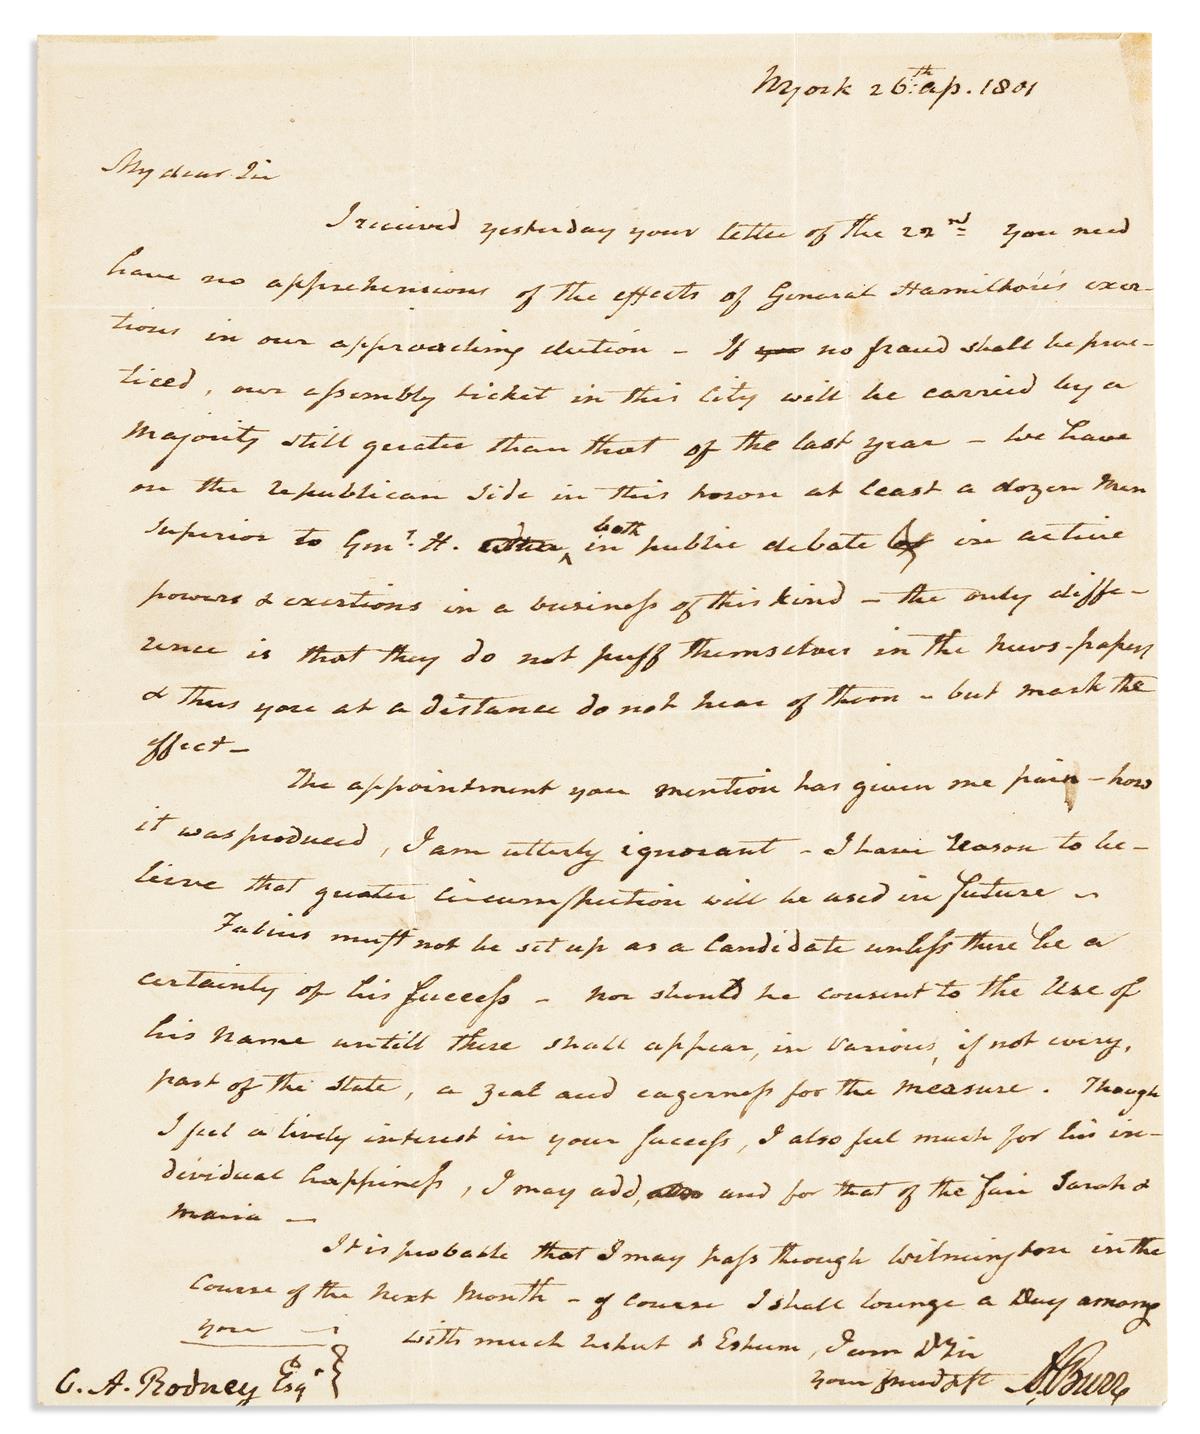 NYork 26th ap. 1801
My dear Sir
I received yesterday your letter of the 22nd You need
have no apprehensions of the effects of General Hamilton's exer-
tions in our approaching election - If no fraud shall be prac-
ticed, our assembly ticket in this City will be carried by a
Majority still greater than that of the last year - We have
on the republican side in this town at least a dozen Men
superior to Genl. H. both in public debate & in active
powers & exertions in a business of this kind - the only diffe-
rence is that they do not puff themselves in the news-papers
& thus you at a distance do not hear of them - but mark the
effect -
The appointment you mention has given me pain - how
it was produced, I am utterly ignorant - I have reason to be-
lieve that greater circumspection will be used in future -
Fabius must not be set up as a Candidate unless there be a
certainty of his success - nor should he consent to the Use of
his Name untill there shall appear, in various, if not every,
part of the State, a zeal and eagerness for the measure. Though
I feel a lively interest in your success, I also feel much for his in-
dividual happiness, I may add, and for that of the fair Sarah &
Maria -
It is probable that I may pass through Wilmington in the
Course of the Next Month - of course I shall lounge a Day among
you -
with much respect & Esteem, I am D Sir
your friend & st
A, Burr
C. A. Rodney Esqr